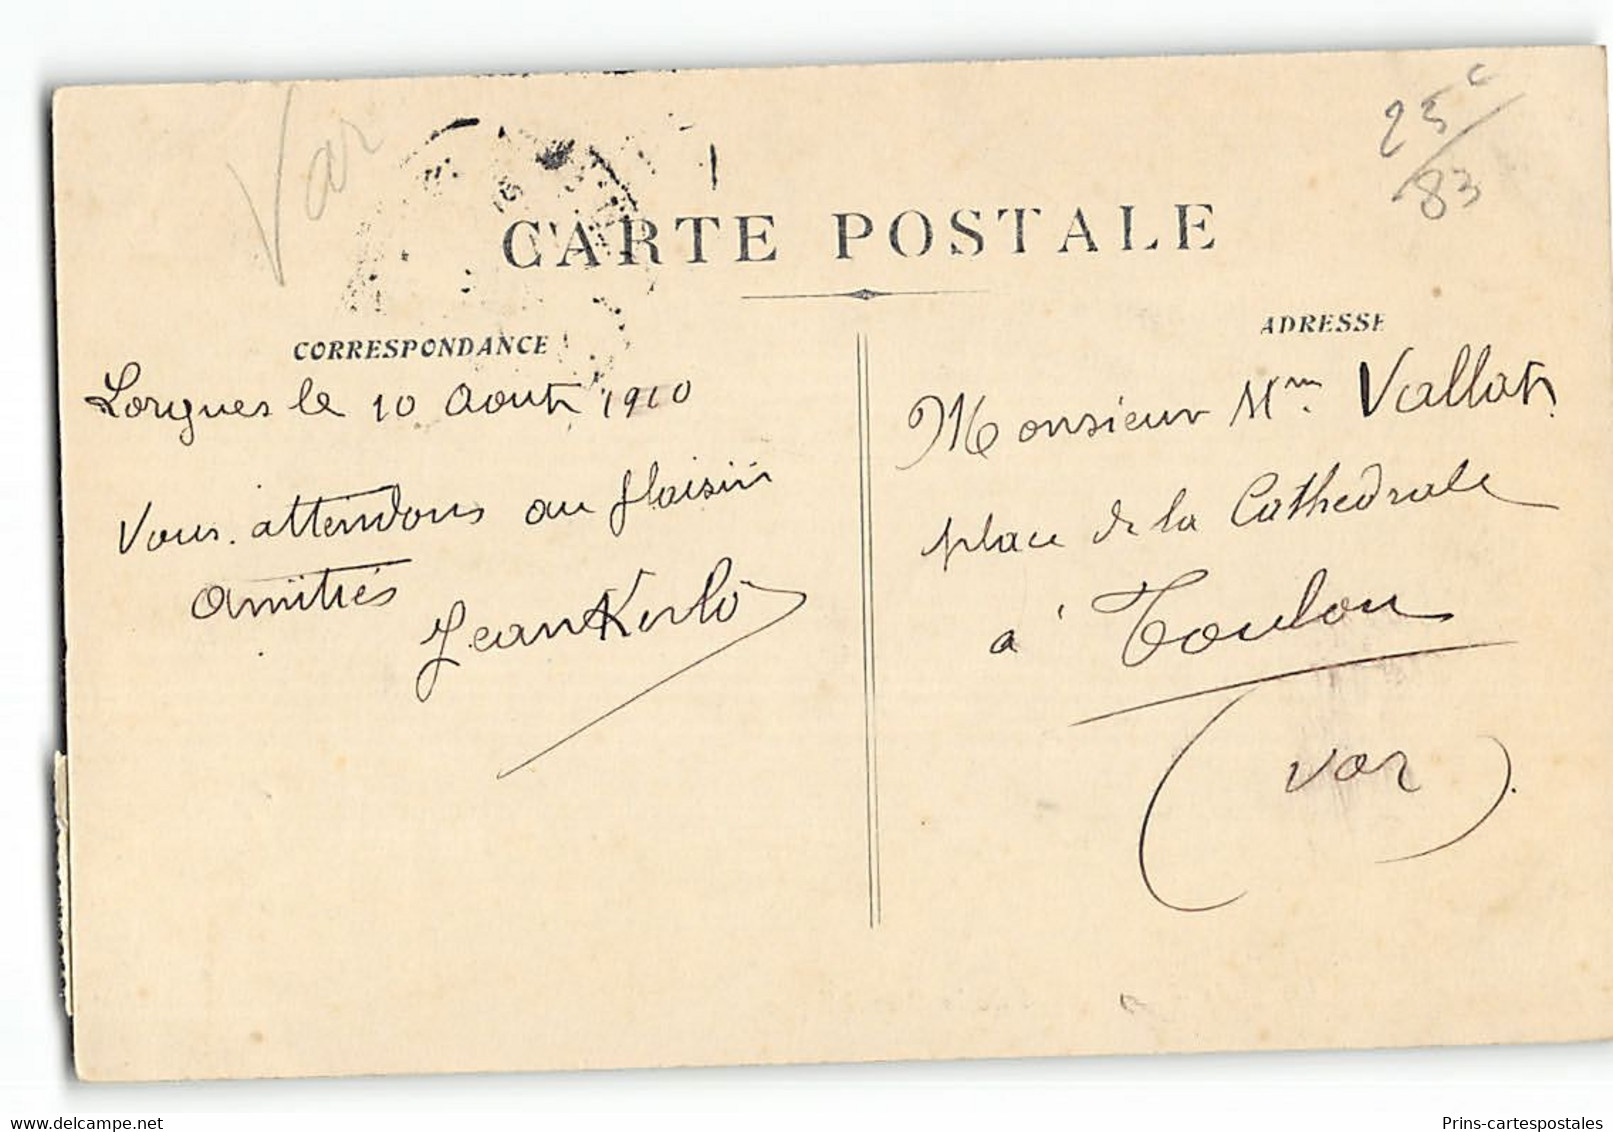 Var
25 c
83
CARTE POSTALE
CORRESPONDANCE
Lorgues le 10 Aout 1910
Vous attendons au plaisir
amitiés
Jean
ADRESSE
Monsieur Mm. Vallat
place de la Cathedrale
à Toulon
(Var).
Prins-cartespostales